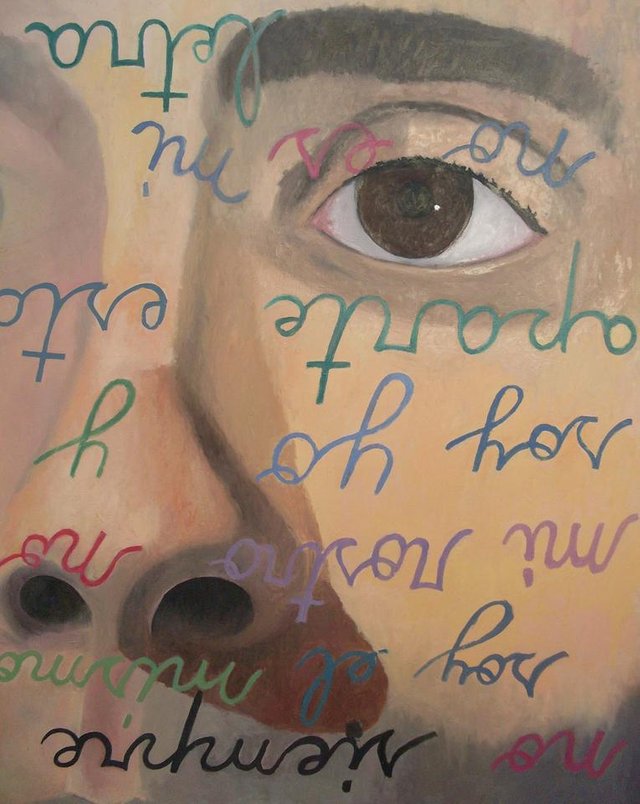 no siempre
soy el mismo
mi rostro no
soy yo y
aparte esta
no es mi
letra